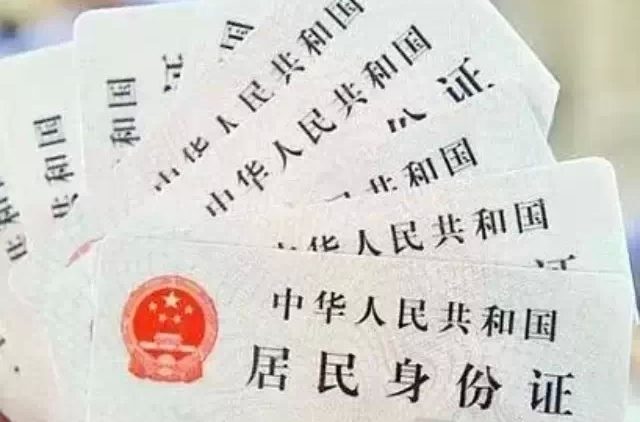 和国
共和国
共和国
中华人民共和国
中华人民共和国
证
民共和国
华人民共和国
中华人民共和国
居民身份证